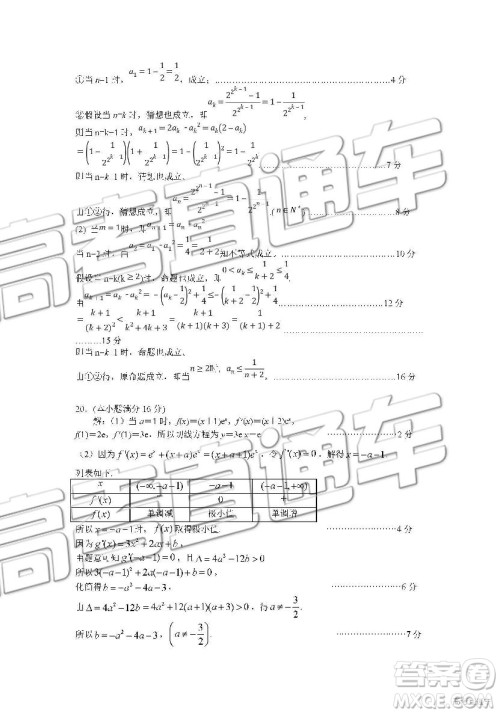 ①当 n=1 时，a₁=1-1/2=1/2，成立；……4 分
②假设当 n=k 时，猜想也成立，即 a_k=(2^(2^(k-1))-1)/2^(2^(k-1))=1-1/2^(2^(k-1))
则当 n=k+1 时，a_(k+1)=2a_k-a_k²=a_k(2-a_k)
=(1-1/2^(2^(k-1)))(1+1/2^(2^(k-1)))=1-(1/2^(2^(k-1)))²=1-1/2^(2^k) ……7 分
则当 n=k+1 时，猜想也成立、
由①②得，猜想成立，即 a_n=(2^(2^(n-1))-1)/2^(2^(n-1))=1-1/2^(2^(n-1)) (n∈N*) ……8 分
(2) 当 m=1 时，即
当 n=2 时，知不等式成立、……10 分
假设当 n=k(k≥2)时，命题也成立，即 0<a_k≤1/(k+2)
由 a_(k+1)=a_k-a_k²=-(a_k-1/2)²+1/4≤-(1/(k+2)-1/2)²+1/4 ……12 分
=(k+1)/(k+2)²=(k+1)/(k²+4k+4)<(k+1)/((k+1)(k+3))=1/(k+3)
………15 分
则当 n=k+1 时，命题也成立、
由①②得，原命题成立，即 n≥2时，a_n≤1/(n+2)、……16 分
20．(本小题满分 16 分)
解：（1）当 a＝1 时，f(x)＝(x＋1)eˣ，f′(x)＝(x＋2)eˣ，
f(1)＝2e，f′(1)＝3e，所以切线方程为 y＝3e x－e ……2 分
（2）因为 f′(x)=eˣ+(x+a)eˣ=(x+a+1)eˣ，令f′(x)=0，解得 x=-a-1
列表如下.
x (-∞,-a-1) -a-1 (-a-1,+∞)
f′(x) - 0 +
f(x) 单调减 极小值 单调增
所以 x=-a-1时，f(x)取得极小值. ……4 分
因为 g′(x)=3x²+2ax+b
由题意可知 g′(-a-1)=0，且Δ=4a²-12b>0
所以3(-a-1)²+2a(-a-1)+b=0，
化简得 b=-a²-4a-3，
由 Δ=4a²-12b=4a²+12(a+1)(a+3)>0，得 a≠-3/2.
所以b=-a²-4a-3，(a≠-3/2). ……7 分
高考直通车